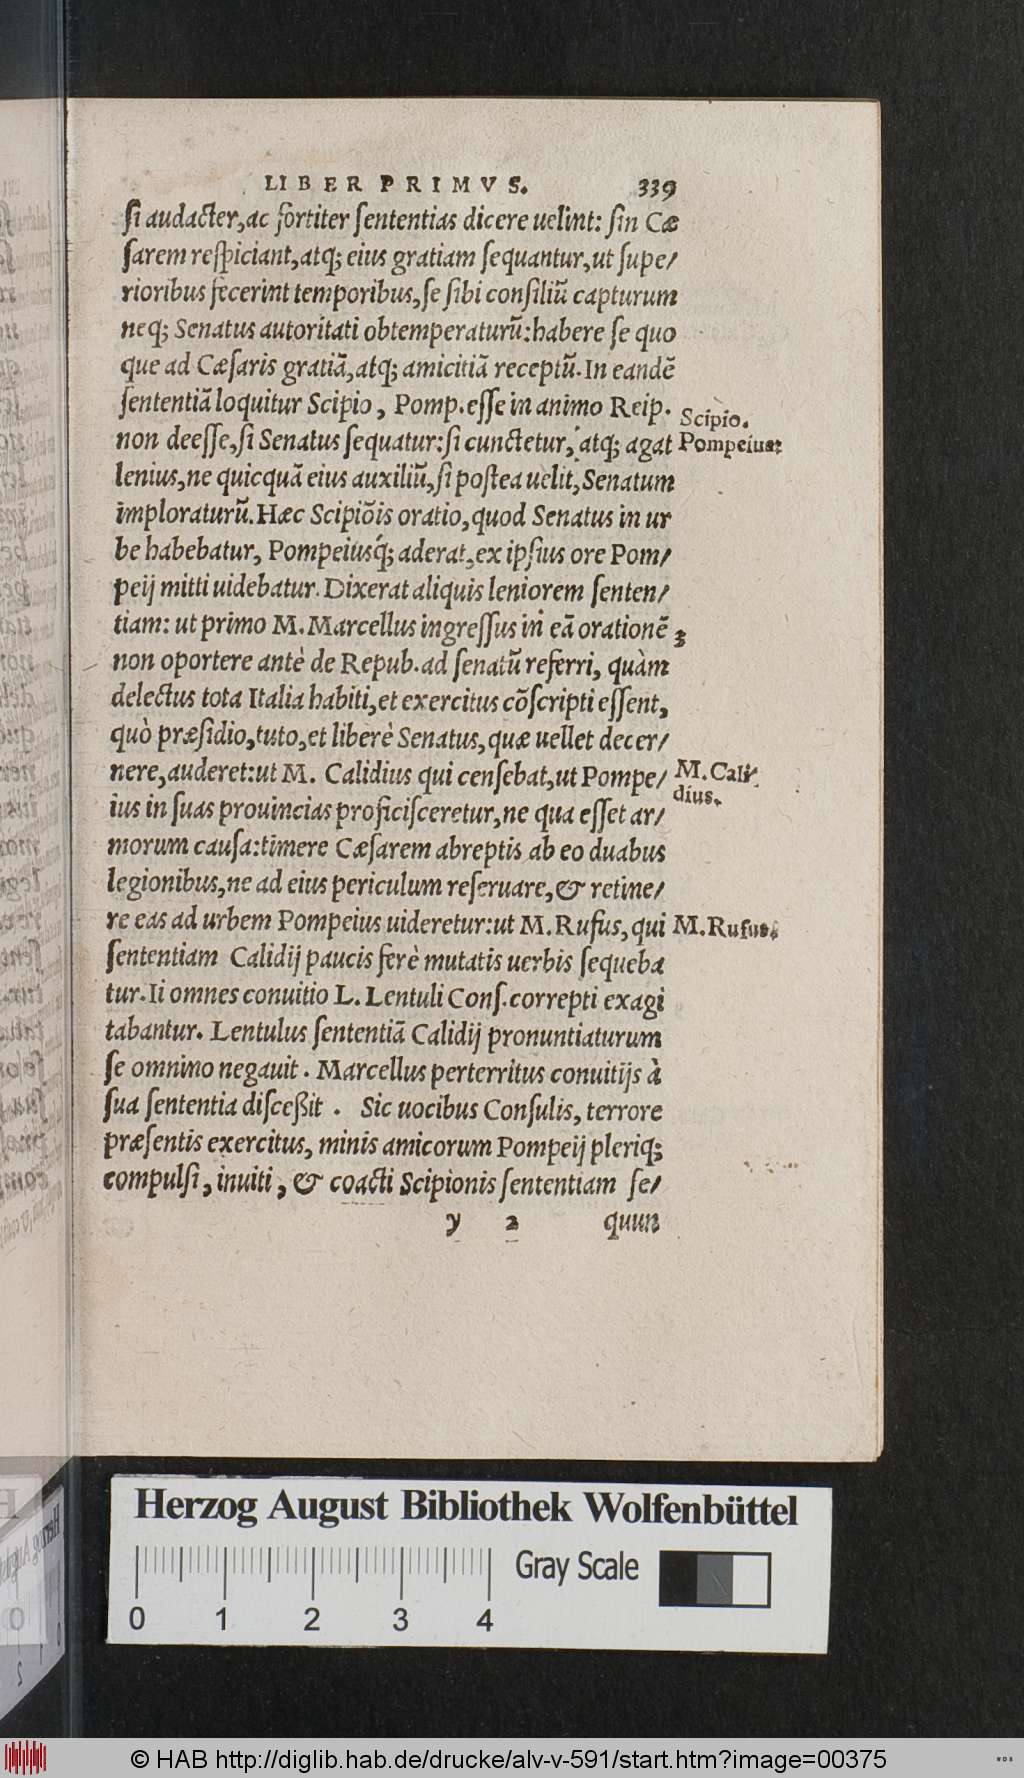 LIBER PRIMVS. 339
si audacter, ac fortiter sententias dicere uelint: sin Cæ
sarem respiciant, atq; eius gratiam sequantur, ut supe/
rioribus fecerint temporibus, se sibi consiliũ capturum
neq; Senatus autoritati obtemperaturũ: habere se quo
que ad Cæsaris gratiã, atq; amicitiã receptũ. In eandẽ
sententiã loquitur Scipio, Pomp. esse in animo Reip.
Scipio.
non deesse, si Senatus sequatur: si cunctetur, atq; agat
Pompeius:
lenius, ne quicquã eius auxiliũ, si postea uelit, Senatum
imploraturũ. Hæc Scipiõis oratio, quod Senatus in ur
be habebatur, Pompeiusq́; aderat, ex ipsius ore Pom/
peij mitti uidebatur. Dixerat aliquis leniorem senten/
tiam: ut primo M. Marcellus ingressus in eã orationẽ ʒ
non oportere antè de Repub. ad senatũ referri, quàm
delectus tota Italia habiti, et exercitus cõscripti essent,
quò præsidio, tuto, et liberè Senatus, quæ uellet decer/
nere, auderet: ut M. Calidius qui censebat, ut Pompe/
M. Cali/
dius.
ius in suas prouincias proficisceretur, ne qua esset ar/
morum causa: timere Cæsarem abreptis ab eo duabus
legionibus, ne ad eius periculum reseruare, & retine/
re eas ad urbem Pompeius uideretur: ut M. Rufus, qui
M. Rufus.
sententiam Calidij paucis ferè mutatis uerbis sequeba
tur. Ii omnes conuitio L. Lentuli Cons. correpti exagi
tabantur. Lentulus sententiã Calidij pronuntiaturum
se omnino negauit. Marcellus perterritus conuitijs à
sua sententia disceßit. Sic uocibus Consulis, terrore
præsentis exercitus, minis amicorum Pompeij pleriq;
compulsi, inuiti, & coacti Scipionis sententiam se/
y 2 quun
Herzog August Bibliothek Wolfenbüttel
Gray Scale
0 1 2 3 4
© HAB http://diglib.hab.de/drucke/alv-v-591/start.htm?image=00375